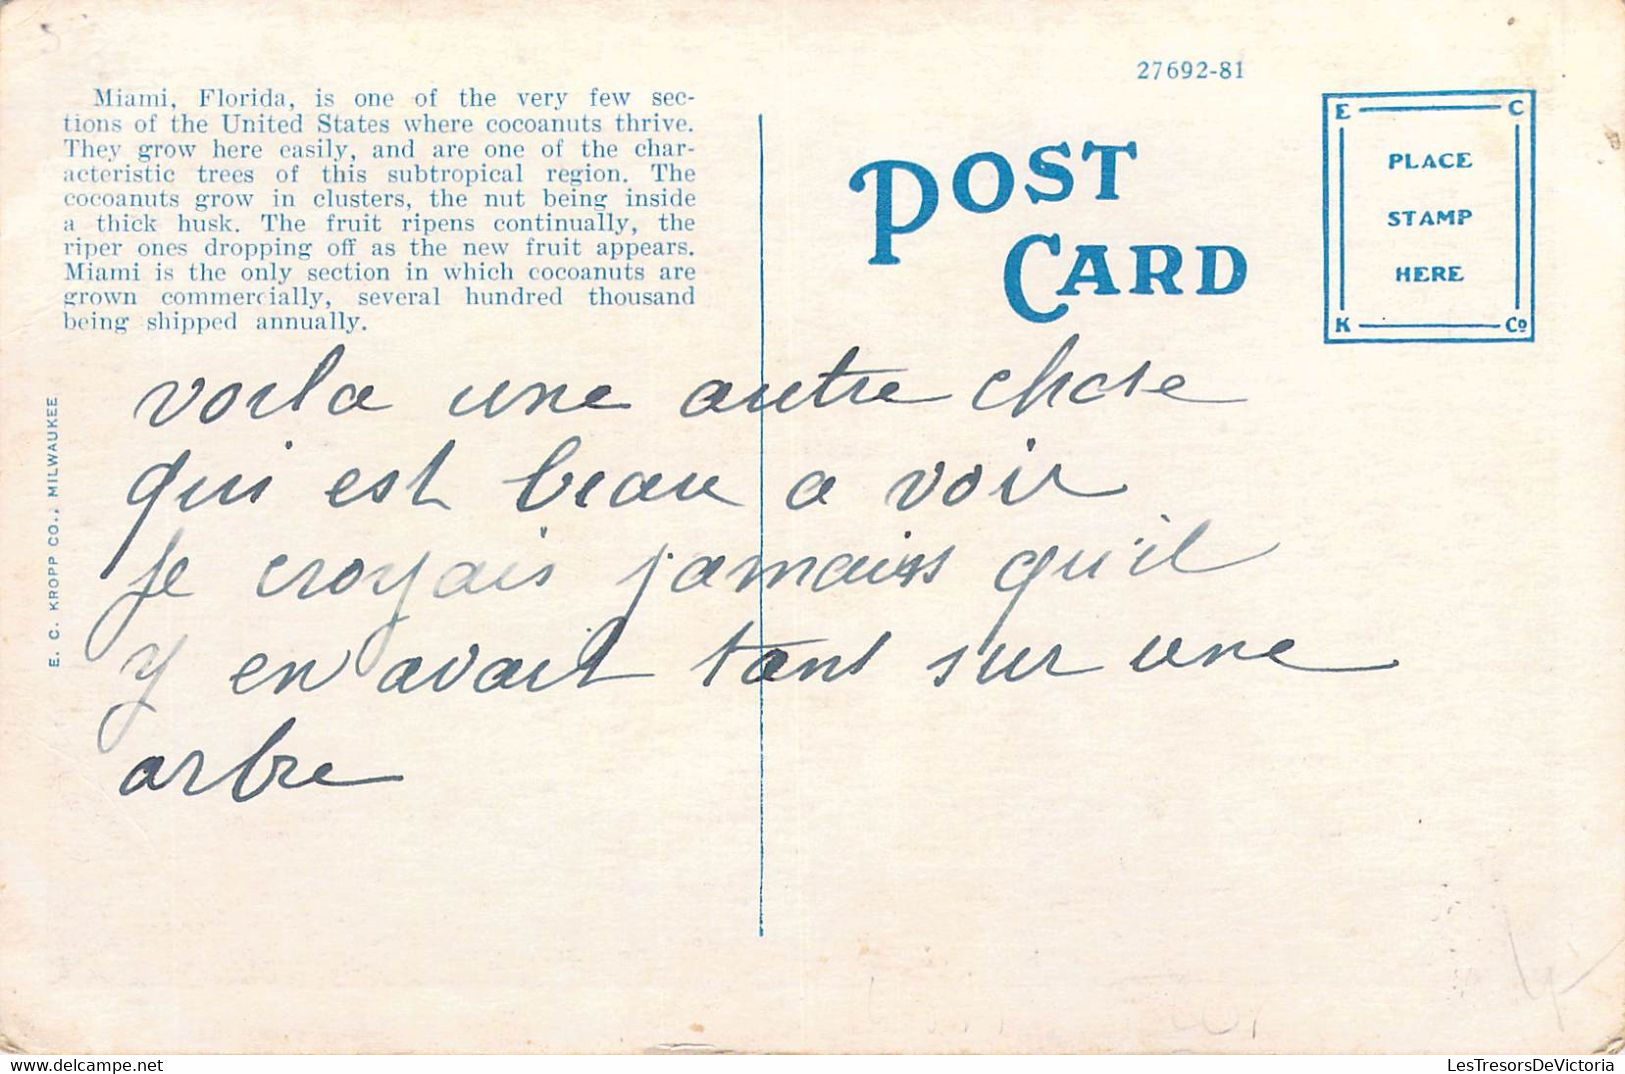 27692-81
Miami, Florida, is one of the very few sec-
tions of the United States where cocoanuts thrive.
They grow here easily, and are one of the char-
acteristic trees of this subtropical region. The
cocoanuts grow in clusters, the nut being inside
a thick husk. The fruit ripens continually, the
riper ones dropping off as the new fruit appears.
Miami is the only section in which cocoanuts are
grown commercially, several hundred thousand
being shipped annually.
POST
CARD
E C
PLACE
STAMP
HERE
K Co
E. C. KROPP CO., MILWAUKEE
voila une autre chose
qui est beau a voir
Je croyais jamaiss qu'il
y en avait tant sur une
arbre
delcampe.net
LesTresorsDeVictoria